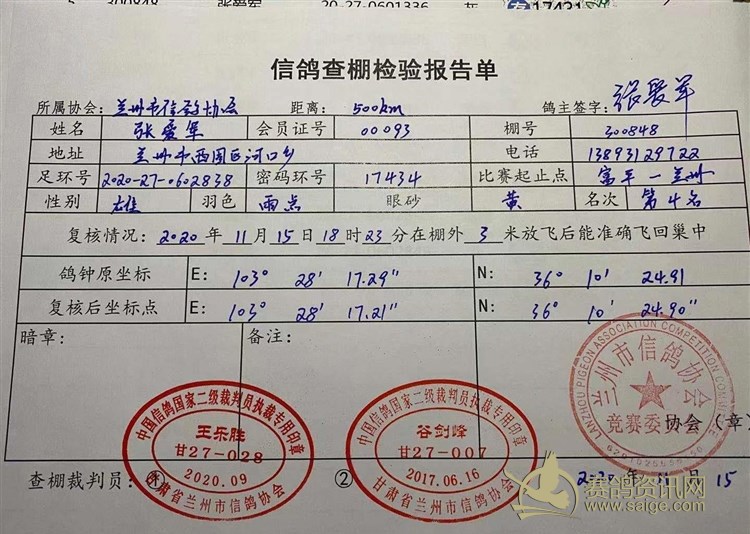 300848 张爱军 20-27-0601336 灰 17431
信鸽查棚检验报告单
所属协会: 兰州市信鸽协会 距离: 500km 鸽主签字: 张爱军
姓名 张爱军 会员证号 00093 棚号 300848
地址 兰州市西固区河口乡 电话 13893129722
足环号 2020-27-0602838 密码环号 17434 比赛起止点 富平—兰州
性别 雄 羽色 雨点 眼砂 黄 名次 第4名
复核情况: 2020年11月15日18时23分在棚外3米放飞后能准确飞回巢中
鸽钟原坐标 E: 103° 28' 17.29" N: 36° 10' 24.91
复核后坐标点 E: 103° 28' 17.21" N: 36° 10' 24.90"
暗章: 备注:
LANZHOU PIGEON ASSOCIATION COMPETITION COMMITTEE
兰州市信鸽协会
竞赛委员会
协会(章)
中国信鸽国家二级裁判员执裁专用印章
王乐胜
甘27-028
2020.09
甘肃省兰州市信鸽协会
中国信鸽国家二级裁判员执裁专用印章
谷剑峰
甘27-007
2017.06.16
甘肃省兰州市信鸽协会
查棚裁判员: ① ② 2020年11月15
赛鸽资讯网
www.saige.com